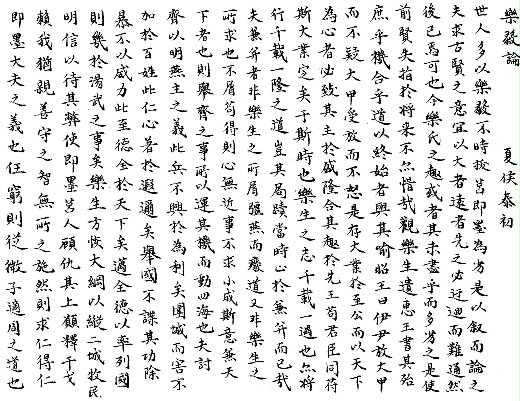 樂毅論 夏侯泰初
世人多以樂毅不時拔莒即墨為劣是以敘而論之
夫求古賢之意宜以大者遠者先之必迂迴而難通然
後已焉可也今樂氏之趣或者其未盡乎而多劣之是使
前賢失指於將來不亦惜哉觀樂生遺惠王書其殆
庶乎機合乎道以終始者與其喻昭王曰伊尹放大甲
而不疑大甲受放而不怨是存大業於至公而以天下
為心者必致其主於盛隆合其趣於先王苟君臣同符
斯大業定矣于斯時也樂生之志千載一遇也亦將
行千載一隆之道豈其局蹟當時止於兼并而已哉
夫兼并者非樂生之所屑彊燕而廢道又非樂生之
所求也不屑苟得則心無近事不求小成斯意兼天
下者也則舉齊之事所以運其機而動四海也夫討
齊以明燕主之義此兵不興於為利矣圍城而害不
加於百姓此仁心著於遐邇矣舉國不謀其功除
暴不以威力此至德全於天下矣邁全德以率列國
則幾於湯武之事矣樂生方恢大綱以縱二城牧民
明信以待其弊使即墨莒人顧仇其上願釋干戈
賴我猶親善守之智無所之施然則求仁得仁
即墨大夫之義也任窮則從微子適周之道也